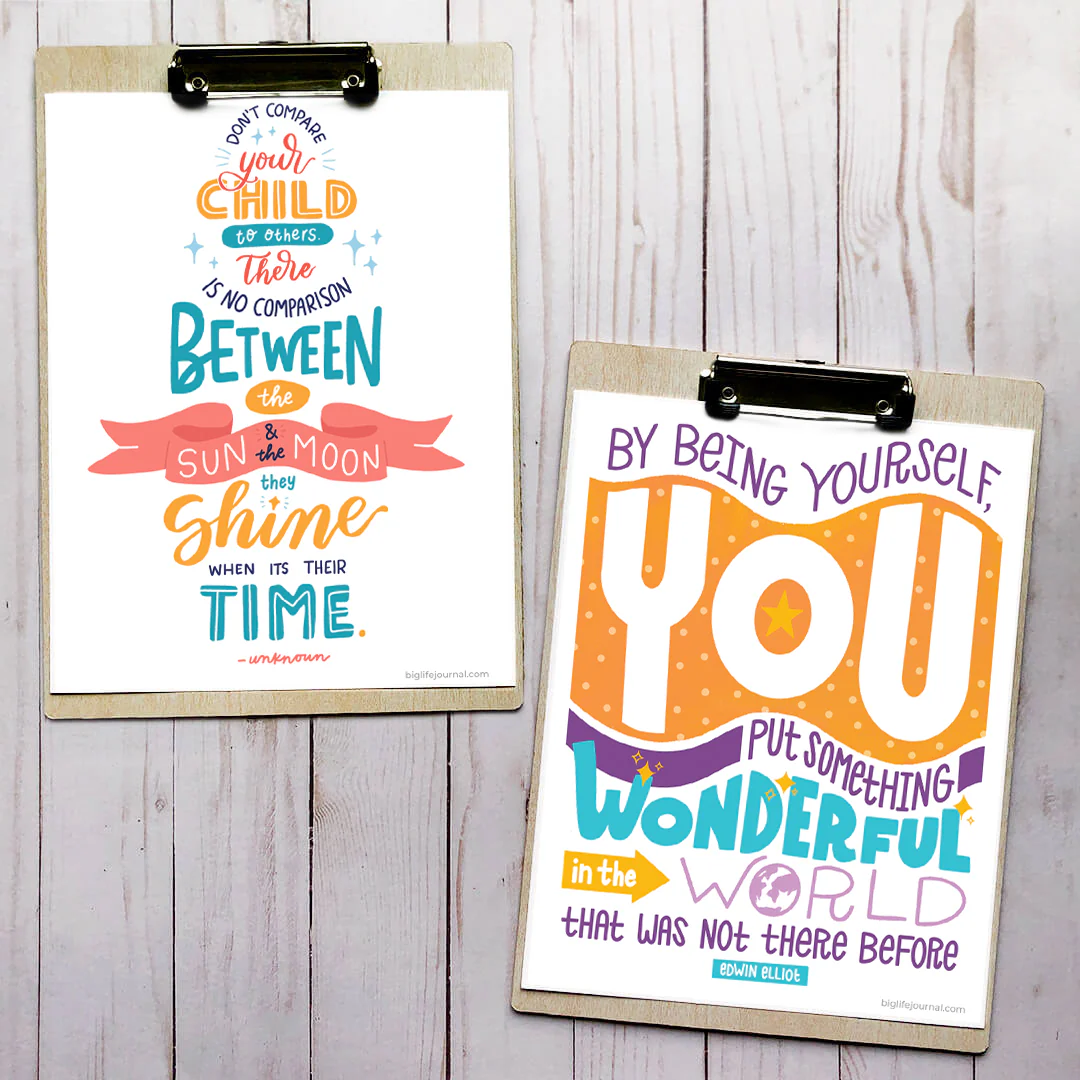 DON'T COMPARE
your
CHILD
to others.
There
IS NO COMPARISON
BETWEEN
the
SUN & the MOON
they
shine
WHEN ITS THEIR
TIME.
-unknoun
biglifejournal.com
BY BEING YOURSELF,
YOU
PUT SOMETHING
WONDERFUL
in the WORLD
tHAt WAS NOt tHeRe BeFORe
eDWIN eLLIOt
biglifejournal.com